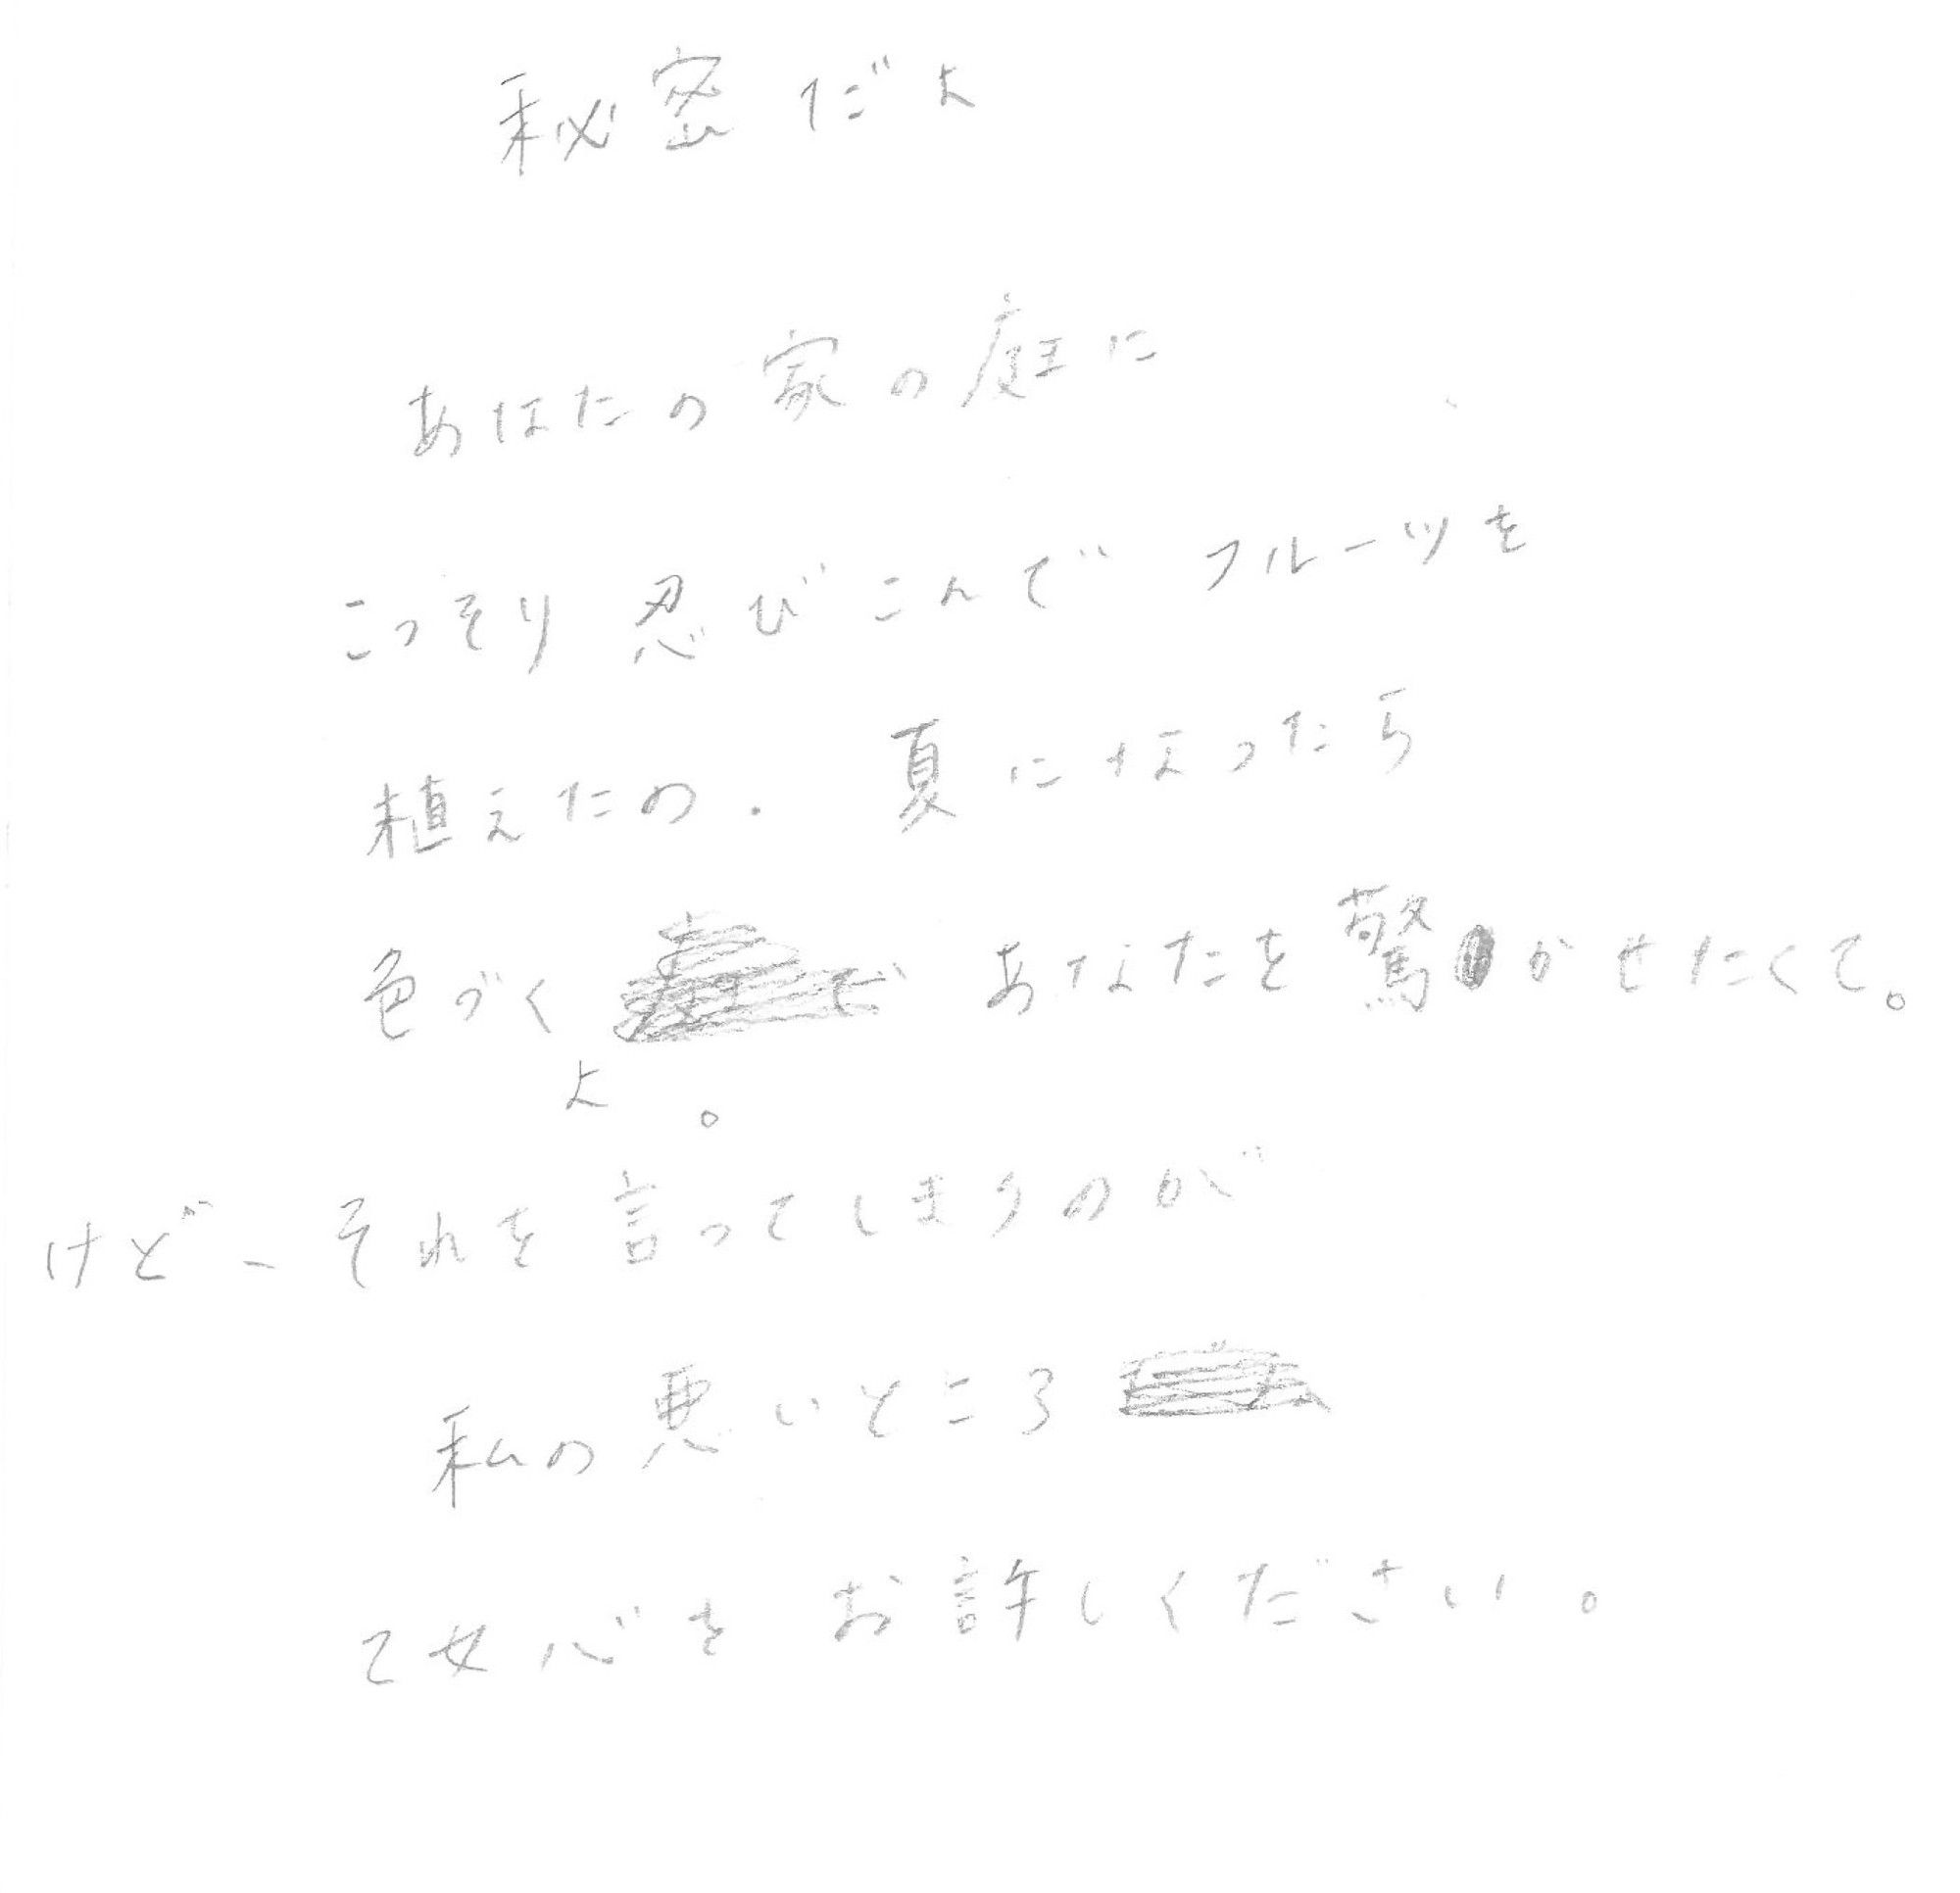 秘密だよ
あなたの家の庭に
こっそり忍びこんで フルーツを
植えたの. 夏になったら
色づく で あなたを驚かせたくて。
よ 。
けど、それを言ってしまうのが
私の悪いところ
乙女心を お許しください。